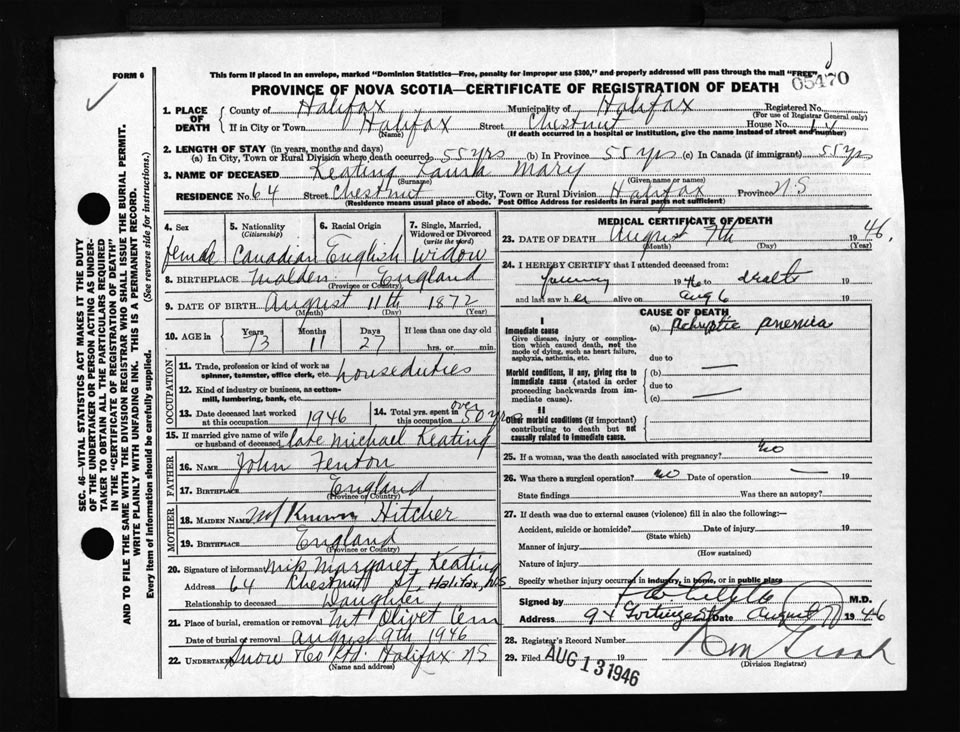 FORM 6
This form if placed in an envelope, marked "Dominion Statistics—Free, penalty for improper use $300," and properly addressed will pass through the mail "FREE"
65470
PROVINCE OF NOVA SCOTIA—CERTIFICATE OF REGISTRATION OF DEATH
1. PLACE OF DEATH
County of Halifax Municipality of Halifax Registered No.
(For use of Registrar General only)
If in City or Town Halifax Street Chestnut House No.
(Name) (If death occurred in a hospital or institution, give the name instead of street and number)
2. LENGTH OF STAY (in years, months and days)
(a) In City, Town or Rural Division where death occurred 55 yrs (b) In Province 55 yrs (c) In Canada (if immigrant) 55 yrs
3. NAME OF DECEASED Keating Laura Mary
(Surname) (Given name or names)
RESIDENCE No. 64 Street Chestnut City, Town or Rural Division Halifax Province N.S
(Residence means usual place of abode. Post Office Address for residents in rural parts not sufficient)
4. Sex 5. Nationality (Citizenship) 6. Racial Origin 7. Single, Married, Widowed or Divorced (write the word)
female Canadian English Widow
8. BIRTHPLACE Malden England
(Province or Country)
9. DATE OF BIRTH August 11th 1872
(Month) (Day) (Year)
10. AGE in Years Months Days If less than one day old
73 11 27 hrs. or min.
OCCUPATION
11. Trade, profession or kind of work as spinner, teamster, office clerk, etc. house duties
12. Kind of industry or business, as cotton-mill, lumbering, bank, etc.
13. Date deceased last worked at this occupation 1946 14. Total yrs. spent in this occupation over 50 yrs
15. If married give name of wife or husband of deceased late Michael Keating
FATHER
16. NAME John Fenton
17. BIRTHPLACE England
(Province or Country)
MOTHER
18. MAIDEN NAME Not Known Hitcher
19. BIRTHPLACE England
(Province or Country)
20. Signature of informant Miss Margaret Keating
Address 64 Chestnut St, Halifax, N.S
Relationship to deceased Daughter
21. Place of burial, cremation or removal Mt Olivet Cem
Date of burial or removal August 9th 1946
22. Undertaker Snow & Co Ltd. Halifax N S
(Name and address)
MEDICAL CERTIFICATE OF DEATH
23. DATE OF DEATH August 7th 1946.
(Month) (Day) (Year)
24. I HEREBY CERTIFY that I attended deceased from:
1946 to death 19
and last saw her alive on Aug 6 19
CAUSE OF DEATH
I
Immediate cause (a) anemia
Give disease, injury or complication which caused death, not the mode of dying, such as heart failure, asphyxia, asthenia, etc.
due to
Morbid conditions, if any, giving rise to immediate cause (stated in order proceeding backwards from immediate cause).
(b) —
due to
(c) —
II
Other morbid conditions (if important) contributing to death but not causally related to immediate cause.
25. If a woman, was the death associated with pregnancy? no
26. Was there a surgical operation? no Date of operation — 19
State findings Was there an autopsy?
27. If death was due to external causes (violence) fill in also the following:—
Accident, suicide or homicide? Date of injury 19
(State which)
Manner of injury
(How sustained)
Nature of injury
Specify whether injury occurred in industry, in home, or in public place
Signed by M.D.
Address Date August 1946
28. Registrar's Record Number
29. Filed AUG 13 1946 19
(Division Registrar)
SEC. 46—VITAL STATISTICS ACT MAKES IT THE DUTY
OF THE UNDERTAKER OR PERSON ACTING AS UNDER-
TAKER TO OBTAIN ALL THE PARTICULARS REQUIRED
IN THE "CERTIFICATE OF REGISTRATION OF DEATH"
AND TO FILE THE SAME WITH THE DIVISION REGISTRAR WHO SHALL ISSUE THE BURIAL PERMIT.
WRITE PLAINLY WITH UNFADING INK. THIS IS A PERMANENT RECORD.
Every item of information should be carefully supplied. (See reverse side for instructions.)